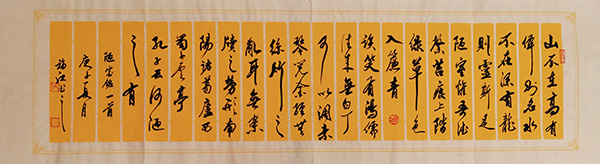 山不在高有
僊则名水
不在深有龍
则靈斯是
陋室惟吾德
馨苔痕上階
绿草色
入簾青
谈笑有鴻儒
往来無白丁
可以调素
琴阅金经無
丝竹之
亂耳無案
牍之劳形南
陽诸葛廬西
蜀子雲亭
孔子云何陋
之有
陋室铭一首
庚子夏月